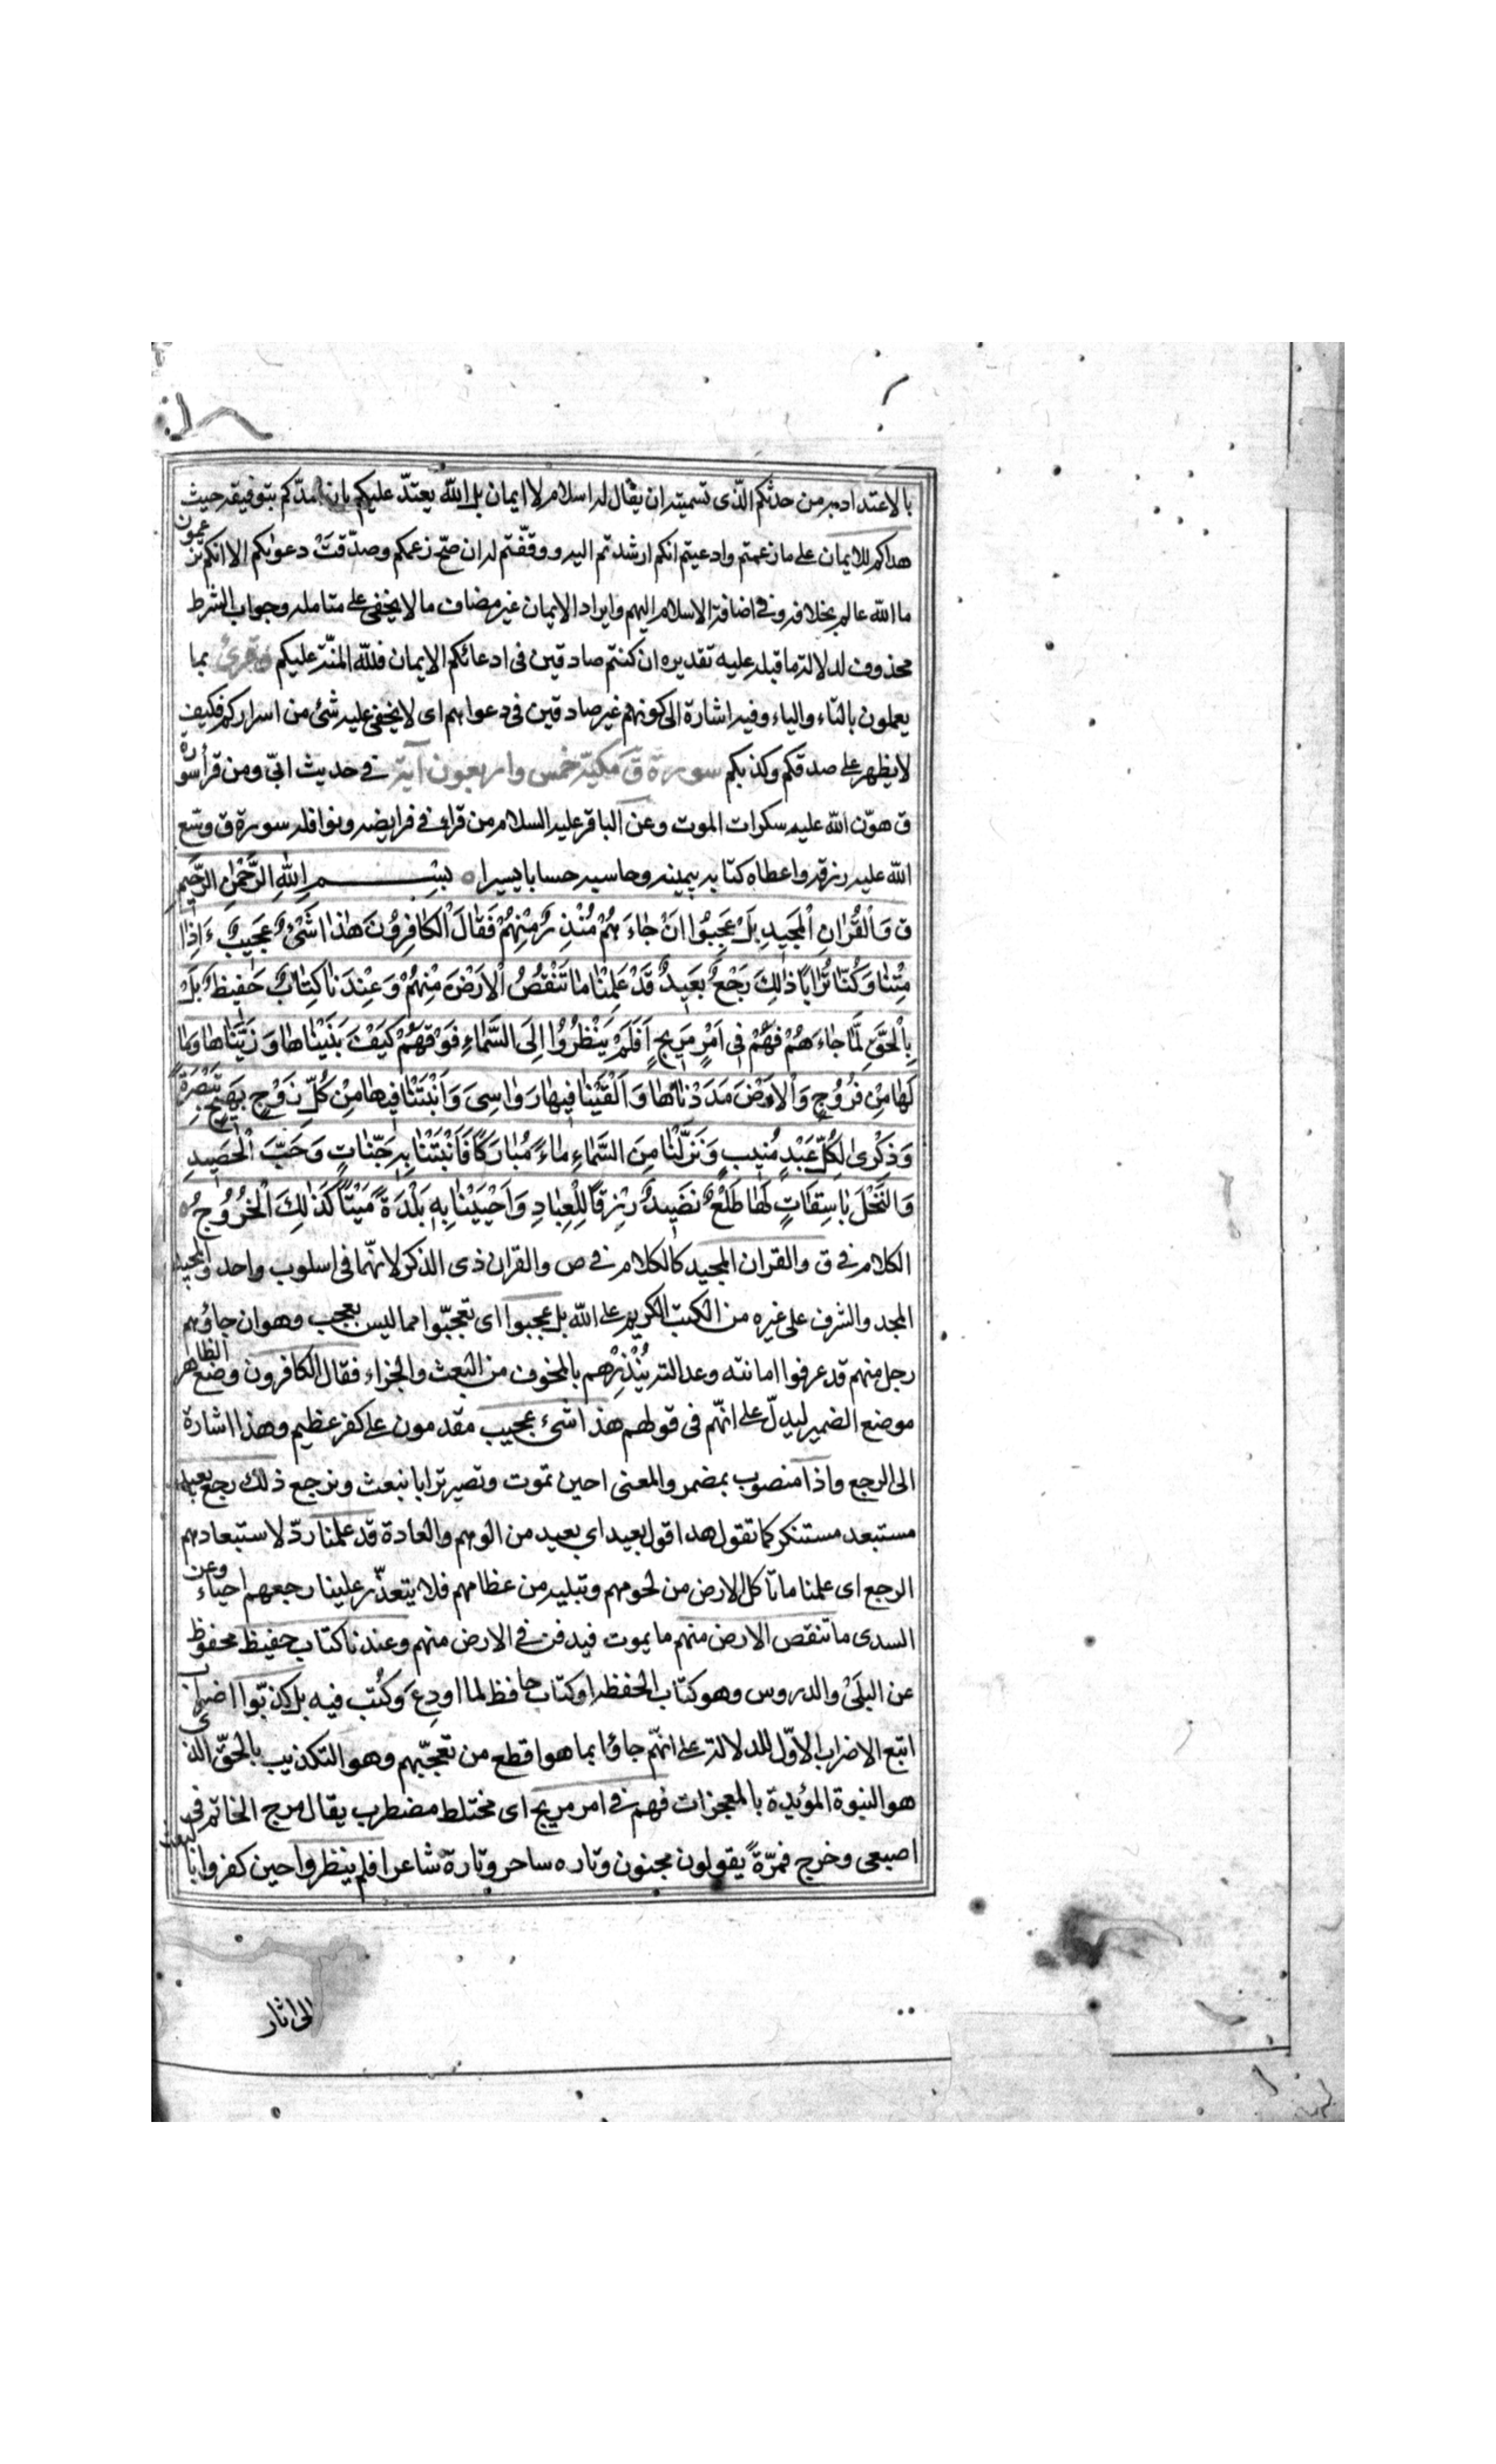 بالاعتداد به من حدثكم الّذى تسميته ان يقال له اسلام لا ايمان بل الله يعتدّ عليكم بان امدّكم بتوفيقه حيث
هداكم للايمان على ما زعمتم وادعيتم انكم ارشدتم اليه ووفّقتم له ان صحّ زعمكم وصدّقت دعواكم الا انكم تزعمون
ما الله عالم بخلافه وفى اضافة الاسلام اليهم وايراد الايمان غير مضاف ما لا يخفى على متامله وجواب الشرط
محذوف لدلالة ما قبله عليه تقديره ان كنتم صادقين فى ادعائكم الايمان فللّه المنّة عليكم وقرئ بما
يعملون بالتاء والياء وفيه اشارة الى كونهم غير صادقين فى دعواهم اى لا يخفى عليه شئ من اسراركم فكيف
لا يظهر على صدقكم وكذبكم سورة ق مكيّة خمس واربعون آية فى حديث ابىّ ومن قرأ سورة
ق هوّن الله عليه سكرات الموت وعن الباقر عليه السلام من قراء فى فرايضه ونوافله سورة ق وسّع
الله عليه رزقه واعطاه كتابه بيمينه وحاسبه حسابا يسيرا ٥ بِسْمِ اللّٰهِ الرَّحْمٰنِ الرَّحِيمِ
ق وَالْقُرْاٰنِ الْمَجِيدِ بَلْ عَجِبُوا اَنْ جَاءَهُمْ مُنْذِرٌ مِنْهُمْ فَقَالَ الْكَافِرُونَ هٰذَا شَىْءٌ عَجِيبٌ ءَاِذَا
مِتْنَا وَكُنَّا تُرَابًا ذٰلِكَ رَجْعٌ بَعِيدٌ قَدْ عَلِمْنَا مَا تَنْقُصُ الْاَرْضُ مِنْهُمْ وَعِنْدَنَا كِتَابٌ حَفِيظٌ بَلْ
بِالْحَقِّ لَمَّا جَاءَهُمْ فَهُمْ فِى اَمْرٍ مَرِيجٍ اَفَلَمْ يَنْظُرُوا اِلَى السَّمَاءِ فَوْقَهُمْ كَيْفَ بَنَيْنَاهَا وَزَيَّنَّاهَا وَمَا
لَهَا مِنْ فُرُوجٍ وَالْاَرْضَ مَدَدْنَاهَا وَاَلْقَيْنَا فِيهَا رَوَاسِىَ وَاَنْبَتْنَا فِيهَا مِنْ كُلِّ زَوْجٍ بَهِيجٍ تَبْصِرَةً
وَذِكْرٰى لِكُلِّ عَبْدٍ مُنِيبٍ وَنَزَّلْنَا مِنَ السَّمَاءِ مَاءً مُبَارَكًا فَاَنْبَتْنَا بِهِ جَنَّاتٍ وَحَبَّ الْحَصِيدِ
وَالنَّخْلَ بَاسِقَاتٍ لَهَا طَلْعٌ نَضِيدٌ رِزْقًا لِلْعِبَادِ وَاَحْيَيْنَا بِهِ بَلْدَةً مَيْتًا كَذٰلِكَ الْخُرُوجُ ٥
الكلام فى ق والقران المجيد كالكلام فى ص والقران ذى الذكر لانّهما فى اسلوب واحد والمجيد
المجد والشرف على غيره من الكتب الكريم على الله بل عجبوا اى تعجّبوا مما ليس بعجب وهو ان جاؤهم
رجل منهم قد عرفوا امانته وعدالته يُنْذِرُهم بالمخوف من البعث والجزاء فقال الكافرون وضع الظاهر
موضع الضمير ليدلّ على انهّم فى قولهم هذا شئ عجيب مقدمون على كفر عظيم وهذا اشارة
الى الرجع واذا منصوب بمضمر والمعنى احين تموت وتصير ترابا نبعث ونرجع ذلك رجع بعيد
مستبعد مستنكر كما تقول هذا قول بعيد اى بعيد من الوهم والعادة قد علمنا ردّ لاستبعادهم
الرجع اى علمنا ما تاكل الارض من لحومهم وتبليه من عظامهم فلا يتعذّر علينا رجعهم احياء وعن
السدى ما تنقص الارض منهم ما يموت فيدفن فى الارض منهم وعندنا كتاب حفيظ محفوظ
عن البلَىٰ والدروس وهو كتاب الحفظة او كتاب حافظ لما اودِعَ وكُتب فيه بل كذبّوا اضراب
اتبع الاضراب الاوّل للدلالة على انهّم جاؤا بما هو اقطع من تعجّبهم وهو التكذيب بالحقّ الذى
هو النبوة المؤيدة بالمعجزات فهم فى امر مريج اى مختلط مضطرب يقال مرج الخاتم فى
اصبعى وخرج فمرّةً يقولون مجنون وتاره ساحر وتارة شاعر افلم ينظروا حين كفروا بالبعث
الى اثار